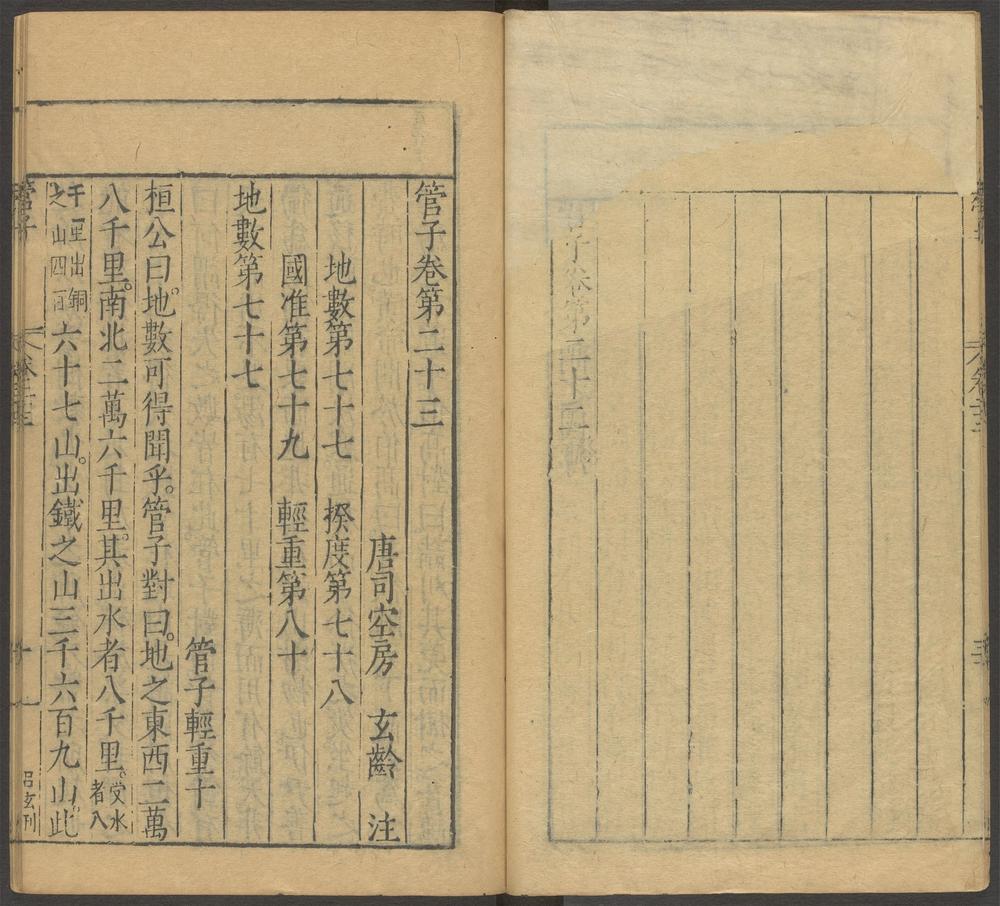 子卷第二十二
管子卷第二十三
唐司空房　玄齡　注
地數第七十七　揆度第七十八
國准第七十九　輕重第八十
地數第七十七
管子輕重十
桓公曰。地數可得聞乎。管子對曰。地之東西二萬
八千里。南北二萬六千里。其出水者八千里。受水者八
千里出銅之山四百六十七山。出鐵之山三千六百九山。此
管子
呂玄刊